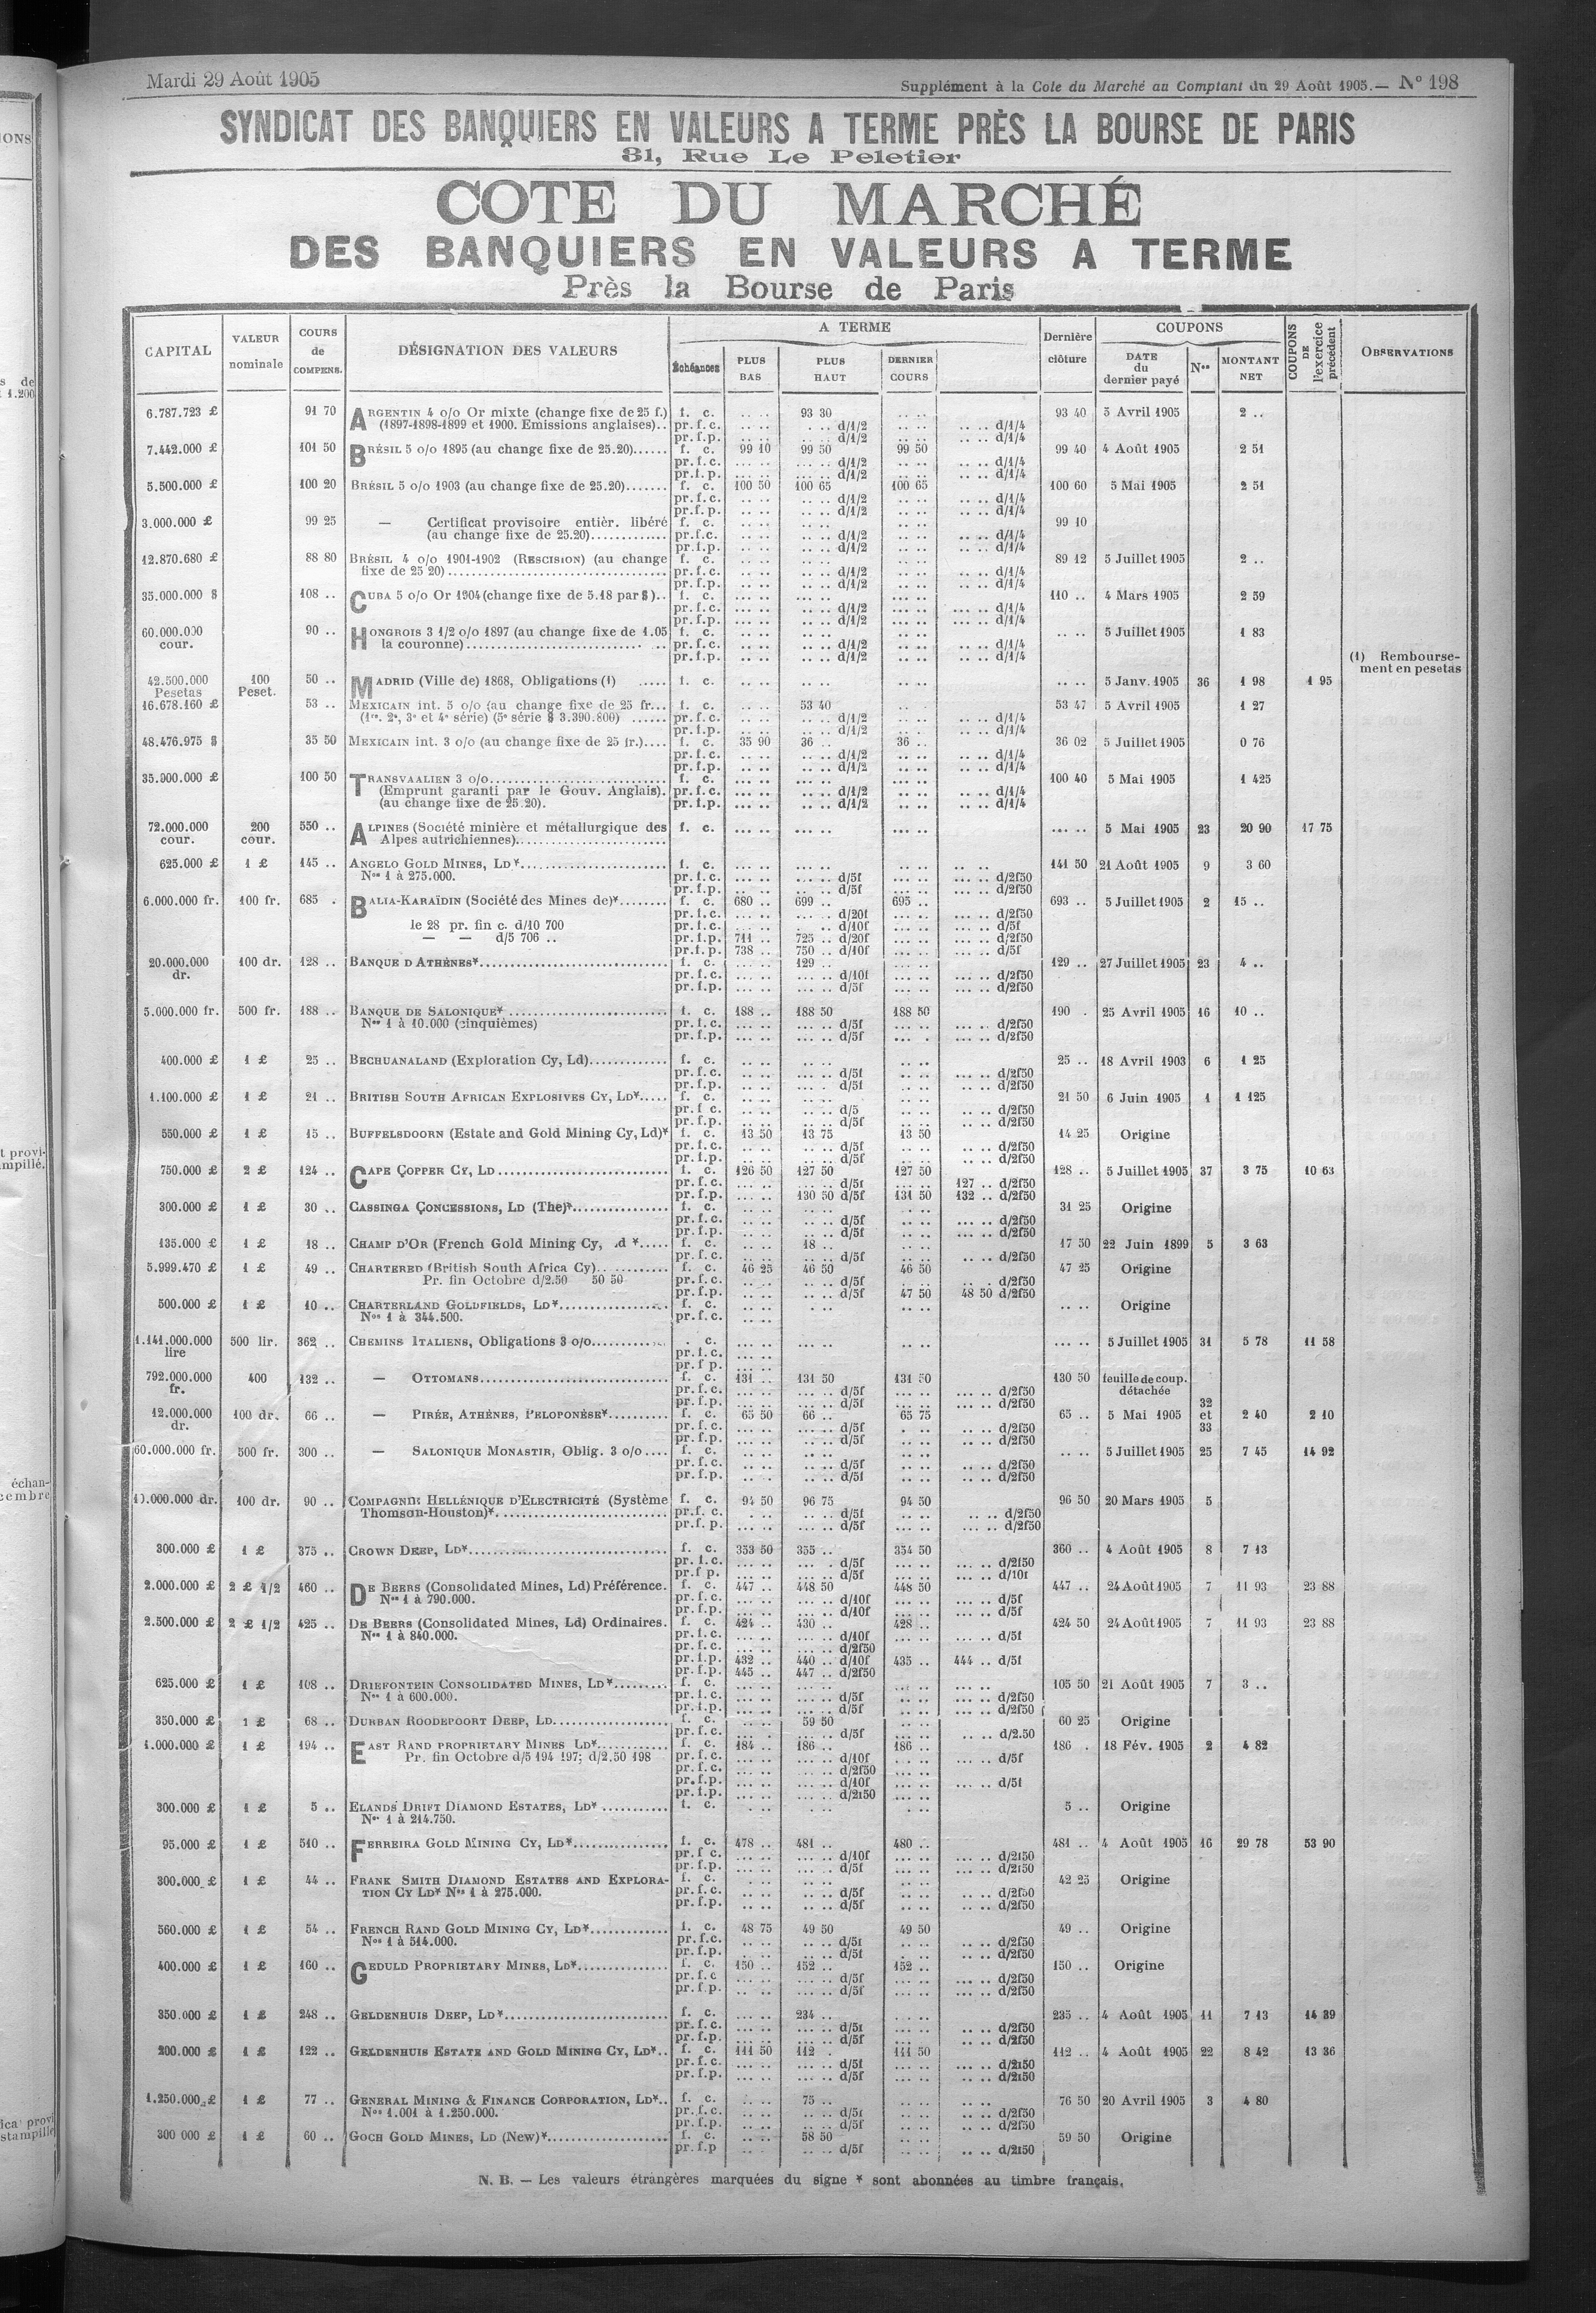 Mardi 29 Août 1905
Supplément à la Cote du Marché au Comptant du 29 Août 1905.— N° 198
SYNDICAT DES BANQUIERS EN VALEURS A TERME PRÈS LA BOURSE DE PARIS
31, Rue Le Peletier
COTE DU MARCHÉ
DES BANQUIERS EN VALEURS A TERME
Près la Bourse de Paris
CAPITAL VALEUR nominale COURS de COMPENS. DÉSIGNATION DES VALEURS A TERME Échéances PLUS BAS PLUS HAUT DERNIER COURS Dernière clôture COUPONS DATE du dernier payé Nos MONTANT NET COUPONS DE l'exercice précédent OBSERVATIONS
6.787.723 £ 91 70 ARGENTIN 4 o/o Or mixte (change fixe de 25 f.) f. c. .. .. 93 30 .. .. 93 40 5 Avril 1905 2 ..
(1897-1898-1899 et 1900. Emissions anglaises).. pr.f.c. .. .. .. .. d/1/2 .. .. .. .. d/1/4
pr.f.p. .. .. .. .. d/1/2 .. .. .. .. d/1/4
7.442.000 £ 101 50 BRÉSIL 5 o/o 1895 (au change fixe de 25.20)...... f. c. 99 10 99 50 99 50 99 40 4 Août 1905 2 51
pr.f.c. .. .. .. .. d/1/2 .. .. .. .. d/1/4
pr.f.p. .. .. .. .. d/1/2 .. .. .. .. d/1/4
5.500.000 £ 100 20 BRÉSIL 5 o/o 1903 (au change fixe de 25.20)....... f. c. 100 50 100 65 100 65 100 60 5 Mai 1905 2 51
pr.f.c. .. .. .. .. d/1/2 .. .. .. .. d/1/4
pr.f.p. .. .. .. .. d/1/2 .. .. .. .. d/1/4
3.000.000 £ 99 25 — Certificat provisoire entièr. libéré f. c. .. .. .. .. .. .. 99 10
(au change fixe de 25.20)............. pr.f.c. .. .. .. .. d/1/2 .. .. .. .. d/1/4
pr.f.p. .. .. .. .. d/1/2 .. .. .. .. d/1/4
12.870.680 £ 88 80 BRÉSIL 4 o/o 1901-1902 (RESCISION) (au change f. c. .. .. .. .. .. .. 89 12 5 Juillet 1905 2 ..
fixe de 25 20)..................................... pr.f.c. .. .. .. .. d/1/2 .. .. .. .. d/1/4
pr.f.p. .. .. .. .. d/1/2 .. .. .. .. d/1/4
35.000.000 $ 108 .. CUBA 5 o/o Or 1904 (change fixe de 5.18 par $).. f. c. ... .. ... .. ... .. 110 .. 4 Mars 1905 2 59
pr.f.c. .. .. .. .. d/1/2 .. .. ... .. d/1/4
pr.f.p. .. .. .. .. d/1/2 .. .. ... .. d/1/4
60.000.000 cour. 90 .. HONGROIS 3 1/2 o/o 1897 (au change fixe de 1.05 f. c. .. .. .. .. .. .. .. .. 5 Juillet 1905 1 83
la couronne)................................ pr.f.c. .. .. .. .. d/1/2 .. .. .. .. d/1/4
pr.f.p. .. .. .. .. d/1/2 .. .. .. .. d/1/4
(1) Rembourse-
ment en pesetas
42.500.000 Pesetas 100 Peset. 50 .. MADRID (Ville de) 1868, Obligations (1) ..... f. c. .. .. .. .. .. .. .. .. 5 Janv. 1905 36 1 98 1 95
16.678.160 £ 53 .. MEXICAIN int. 5 o/o (au change fixe de 25 fr... f. c. .. .. 53 40 .. .. 53 47 5 Avril 1905 1 27
(1re. 2e, 3e et 4e série) (5e série $ 3.390.800) ...... pr.f.c. .. .. .. .. d/1/2 .. .. .. .. d/1/4
pr.f.p. .. .. .. .. d/1/2 .. .. .. .. d/1/4
48.476.975 $ 35 50 MEXICAIN int. 3 o/o (au change fixe de 25 fr.).... f. c. 35 90 36 .. 36 .. 36 02 5 Juillet 1905 0 76
pr.f.c. .. .. .. .. d/1/2 .. .. .. .. d/1/4
pr.f.p. .. .. .. .. d/1/2 .. .. .. .. d/1/4
35.000.000 £ 100 50 TRANSVAALIEN 3 o/o............................. f. c. ... .. ... .. ... .. 100 40 5 Mai 1905 1 425
(Emprunt garanti par le Gouv. Anglais). pr.f.c. ... .. ... .. d/1/2 ... .. .. .. d/1/4
(au change fixe de 25.20). pr.f.p. ... .. ... .. d/1/2 ... .. .. .. d/1/4
72.000.000 cour. 200 cour. 550 .. ALPINES (Société minière et métallurgique des f. c. ... .. ... .. ... .. ... .. 5 Mai 1905 23 20 90 17 75
Alpes autrichiennes).........................
625.000 £ 1 £ 145 .. ANGELO GOLD MINES, LD*........................ f. c. ... .. ... .. ... .. .. .. 141 50 21 Août 1905 9 3 60
Nos 1 à 275.000. pr.f.c. ... .. ... .. d/5f ... .. ... .. d/2f50
pr.f.p. .. .. .. .. d/5f ... .. ... .. d/2f50
6.000.000 fr. 100 fr. 685 . BALIA-KARAÏDIN (Société des Mines de)*........ f. c. 680 .. 699 .. 695 .. 693 .. 5 Juillet 1905 2 15 ..
pr.f.c. ... .. ... .. d/20f ... .. ... .. d/2f50
le 28 pr. fin c. d/10 700 pr.f.c. ... .. ... .. d/10f ... .. ... .. d/5f
— — d/5 706 .. pr.f.p. 711 .. 725 .. d/20f ... .. ... .. d/2f50
pr.f.p. 738 .. 750 .. d/10f ... .. ... .. d/5f
20.000.000 dr. 100 dr. 128 .. BANQUE D'ATHÈNES*.............................. f. c. ... .. 129 .. ... .. 129 .. 27 Juillet 1905 23 4 ..
pr.f.c. ... .. ... .. d/10f ... .. ... .. d/2f50
pr.f.p. ... .. ... .. d/5f ... .. ... .. d/2f50
5.000.000 fr. 500 fr. 188 .. BANQUE DE SALONIQUE* .......................... f. c. 188 .. 188 50 188 50 190 . 25 Avril 1905 16 10 ..
Nos 1 à 10.000 (cinquièmes) pr.f.c. ... .. ... .. d/5f ... .. ... .. d/2f50
pr.f.p. ... .. ... .. d/5f ... . ... .. d/2f50
400.000 £ 1 £ 25 .. BECHUANALAND (Exploration Cy, Ld)............. f. c. .. .. .. .. .. .. 25 .. 18 Avril 1903 6 1 25
pr.f.c. .. .. ... .. d/5f .. .. ... .. d/2f50
pr.f.p. .. .. ... .. d/5f .. .. ... .. d/2f50
1.100.000 £ 1 £ 21 .. BRITISH SOUTH AFRICAN EXPLOSIVES CY, LD*..... f. c. .. .. .. .. .. .. 21 50 6 Juin 1905 1 1 125
pr.f c. .. .. .. .. d/5 .. .. .. .. d/2f50
pr.f.p. .. .. .. .. d/5f .. .. .. .. d/2f50
550.000 £ 1 £ 15 .. BUFFELSDOORN (Estate and Gold Mining Cy, Ld)* f. c. 13 50 13 75 13 50 14 25 Origine
pr.f.c. .. .. .. .. d/5f .. .. .. .. d/2f50
pr.f.p. .. .. .. .. d/5f .. .. .. .. d/2f50
750.000 £ 2 £ 124 .. CAPE COPPER CY, LD............................ f. c. 126 50 127 50 127 50 128 .. 5 Juillet 1905 37 3 75 10 63
pr.f.c. ... .. ... .. d/5f ... .. 127 .. d/2f50
pr.f.p. ... .. 130 50 d/5f 131 50 132 .. d/2f50
300.000 £ 1 £ 30 .. CASSINGA CONCESSIONS, LD (The)*................ f. c. .. .. .. .. .. .. 31 25 Origine
pr.f.c. .. .. .. .. d/5f .. .. ... .. d/2f50
pr.f.p. .. .. .. .. d/5f .. .. ... .. d/2f50
135.000 £ 1 £ 18 .. CHAMP D'OR (French Gold Mining Cy, .d *..... f. c. .. .. 18 .. .. .. 17 50 22 Juin 1899 5 3 63
pr.f.c. .. .. .. .. d/5f .. .. .. .. d/2f50
5.999.470 £ 1 £ 49 .. CHARTERED (British South Africa Cy)............ f. c. 46 25 46 50 46 50 47 25 Origine
Pr. fin Octobre d/2.50 50 50 pr.f.c. .. .. .. .. d/5f .. .. .. . d/2f50
pr.f.p. .. .. .. .. d/5f 47 50 48 50 d/2f50
500.000 £ 1 £ 10 .. CHARTERLAND GOLDFIELDS, LD*................... f. c. .. .. .. .. .. .. .. .. Origine
Nos 1 à 344.500. pr.f.c. .. ..
1.141.000.000 lire 500 lir. 362 .. CHEMINS ITALIENS, Obligations 3 o/o............ . c. ... .. ... .. .. .. ... .. 5 Juillet 1905 31 5 78 11 58
pr.f.c. ... ..
pr.f p. ... ..
792.000.000 fr. 400 132 .. — OTTOMANS............................... f. c. 131 .. 131 50 131 50 130 50 feuille de coup. détachée
pr.f.c. ... .. ... .. d/5f ... .. ... .. d/2f50
pr.f.p. ... .. ... .. d/5f ... .. ... .. d/2f50
12.000.000 dr. 100 dr. 66 .. — PIRÉE, ATHÈNES, PELOPONÈSE*.......... f. c. 65 50 66 .. 65 75 65 .. 5 Mai 1905 32 et 33 2 40 2 10
pr.f.c. .. .. .. .. d/5f . .. .. .. d/2f50
pr.f.p. .. .. .. .. d/5f .. .. .. .. d/2f50
60.000.000 fr. 500 fr. 300 .. — SALONIQUE MONASTIR, Oblig. 3 o/o.... f. c. .. .. .. .. .. .. .. .. 5 Juillet 1905 25 7 45 14 92
pr.f.c. .. .. .. .. d/5f .. .. .. .. d/2f50
pr.f.p. .. .. .. .. d/5f .. .. .. .. d/2f50
10.000.000 dr. 100 dr. 90 .. COMPAGNIE HELLÉNIQUE D'ELECTRICITÉ (Système f. c. 94 50 96 75 94 50 96 50 20 Mars 1905 5
Thomson-Houston)*............................ pr.f. c. . .. ... .. d/5f .. .. .. .. d/2f50
pr.f. p. ... .. ... .. d/5f ... .. ... .. d/2f50
300.000 £ 1 £ 375 .. CROWN DEEP, LD*................................ f. c. 353 50 355 .. 354 50 360 .. 4 Août 1905 8 7 13
pr.f.c. ... .. ... . d/5f ... .. ... .. d/2f50
pr.f p. ... .. ... .. d/5f ... .. ... .. d/10f
2.000.000 £ 2 £ 1/2 460 .. DE BEERS (Consolidated Mines, Ld) Préférence. f. c. 447 .. 448 50 448 50 447 .. 24 Août 1905 7 11 93 23 88
Nos 1 à 790.000. pr.f.c. ... .. ... .. d/10f ... .. ... .. d/5f
pr.f.p. ... .. ... .. d/10f ... .. ... .. d/5f
2.500.000 £ 2 £ 1/2 425 .. DE BEERS (Consolidated Mines, Ld) Ordinaires. f. c. 424 .. 430 .. 428 .. 424 50 24 Août 1905 7 11 93 23 88
Nos 1 à 840.000. pr.f.c. ... .. ... .. d/10f ... .. ... .. d/5f
pr.f.c. ... .. ... .. d/2f50
pr.f.p. 432 .. 440 .. d/10f 435 .. 444 .. d/5f
pr.f.p. 445 .. 447 .. d/2f50
625.000 £ 1 £ 108 .. DRIEFONTEIN CONSOLIDATED MINES, LD*......... f. c. ... .. ... .. .. .. ... . 105 50 21 Août 1905 7 3 ..
Nos 1 à 600.000. pr.f.c. ... .. ... .. d/5f ... .. ... .. d/2f50
pr.f.p. ... .. ... .. d/5f ... .. ... .. d/2f50
350.000 £ 1 £ 68 .. DURBAN ROODEPOORT DEEP, LD................... f. c. .. .. 59 50 .. .. 60 25 Origine
pr.f.c. ... . ... .. d/5f .. .. .. .. d/2.50
1.000.000 £ 1 £ 194 .. EAST RAND PROPRIETARY MINES LD*............ f. c. 184 .. 186 .. 186 .. 186 . 18 Fév. 1905 2 4 82
Pr. fin Octobre d/5 194 197; d/2.50 198 pr.f.c. ... .. ... .. d/10f ... .. ... .. d/5f
pr.f.c. ... .. ... .. d/2f50
pr.f.p. ... .. ... .. d/10f ... .. ... .. d/5f
pr.f.p. ... .. ... .. d/2f50
300.000 £ 1 £ 5 .. ELANDS DRIFT DIAMOND ESTATES, LD* ........... f. c. . .. .. .. . .. 5 .. Origine
Nos 1 à 214.750.
95.000 £ 1 £ 510 .. FERREIRA GOLD MINING CY, LD*................ f. c. 478 .. 481 .. 480 .. 481 .. 4 Août 1905 16 29 78 53 90
pr.f c. ... .. ... .. d/10f ... .. ... .. d/2f50
pr.f.p. ... .. ... .. d/5f ... .. ... .. d/2f50
300.000 £ 1 £ 44 .. FRANK SMITH DIAMOND ESTATES AND EXPLORA- f. c. .. .. .. .. .. .. 42 25 Origine
TION CY LD* Nos 1 à 275.000. pr.f.c. .. .. .. .. d/5f .. .. .. .. d/2f50
pr.f.p. .. .. .. .. d/5f .. .. .. .. d/2f50
560.000 £ 1 £ 54 .. FRENCH RAND GOLD MINING CY, LD*............. f. c. 48 75 49 50 49 50 49 .. Origine
Nos 1 à 514.000. pr.f.c. .. .. .. .. d/5f .. .. .. .. d/2f50
pr.f.p. .. .. .. .. d/5f .. .. .. .. d/2f50
400.000 £ 1 £ 160 .. GEDULD PROPRIETARY MINES, LD*................ f. c. 150 .. 152 .. 152 .. 150 .. Origine
pr.f.c ... .. ... .. d/5f ... .. ... .. d/2f50
pr.f.p. .. .. ... .. d/5f ... .. ... .. d/2f50
350.000 £ 1 £ 248 .. GELDENHUIS DEEP, LD*........................... f. c. ... .. 234 .. .. .. 235 .. 4 Août 1905 11 7 13 14 39
pr.f.c. ... .. ... .. d/5f ... .. .. .. d/2f50
pr.f.p. ... .. ... .. d/5f ... .. .. .. d/2f50
200.000 £ 1 £ 122 .. GELDENHUIS ESTATE AND GOLD MINING CY, LD*.. f. c. 111 50 112 . 111 50 112 .. 4 Août 1905 22 8 42 13 36
pr.f.c. ... .. ... .. d/5f ... .. ... .. d/2f50
pr.f.p. ... .. ... .. d/5f ... .. ... .. d/2f50
1.250.000 £ 1 £ 77 .. GENERAL MINING & FINANCE CORPORATION, LD*.. f. c. .. .. 75 .. .. .. .. .. 76 50 20 Avril 1905 3 4 80
Nos 1.001 à 1.250.000. pr.f.c. .. .. .. .. d/5f .. .. ... .. d/2f50
pr.f.p. .. .. .. .. d/5f .. .. ... .. d/2f50
300 000 £ 1 £ 60 .. GOCH GOLD MINES, LD (New)*.................... f. c. .. .. 58 50 .. .. 59 50 Origine
pr.f.p .. .. .. .. d/5f .. .. ... .. d/2f50
N. B. — Les valeurs étrangères marquées du signe * sont abonnées au timbre français.